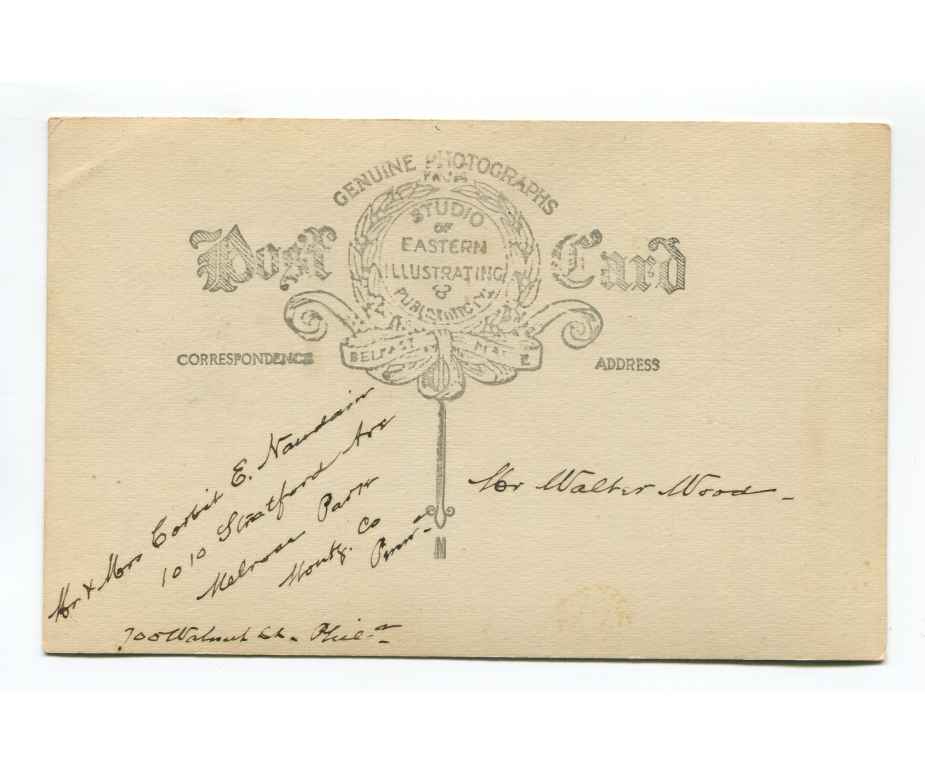 GENUINE PHOTOGRAPHS
FROM
Post Card
STUDIO
OF
EASTERN
ILLUSTRATING
&
PUBLISHING CO.
BELFAST MAINE
CORRESPONDENCE
ADDRESS
Mr & Mrs Corbit E. Naudain
1010 Stratford Ave
Melrose Park
Montg. Co
Penna
700 Walnut St. Phila
Mr Walter Wood
N